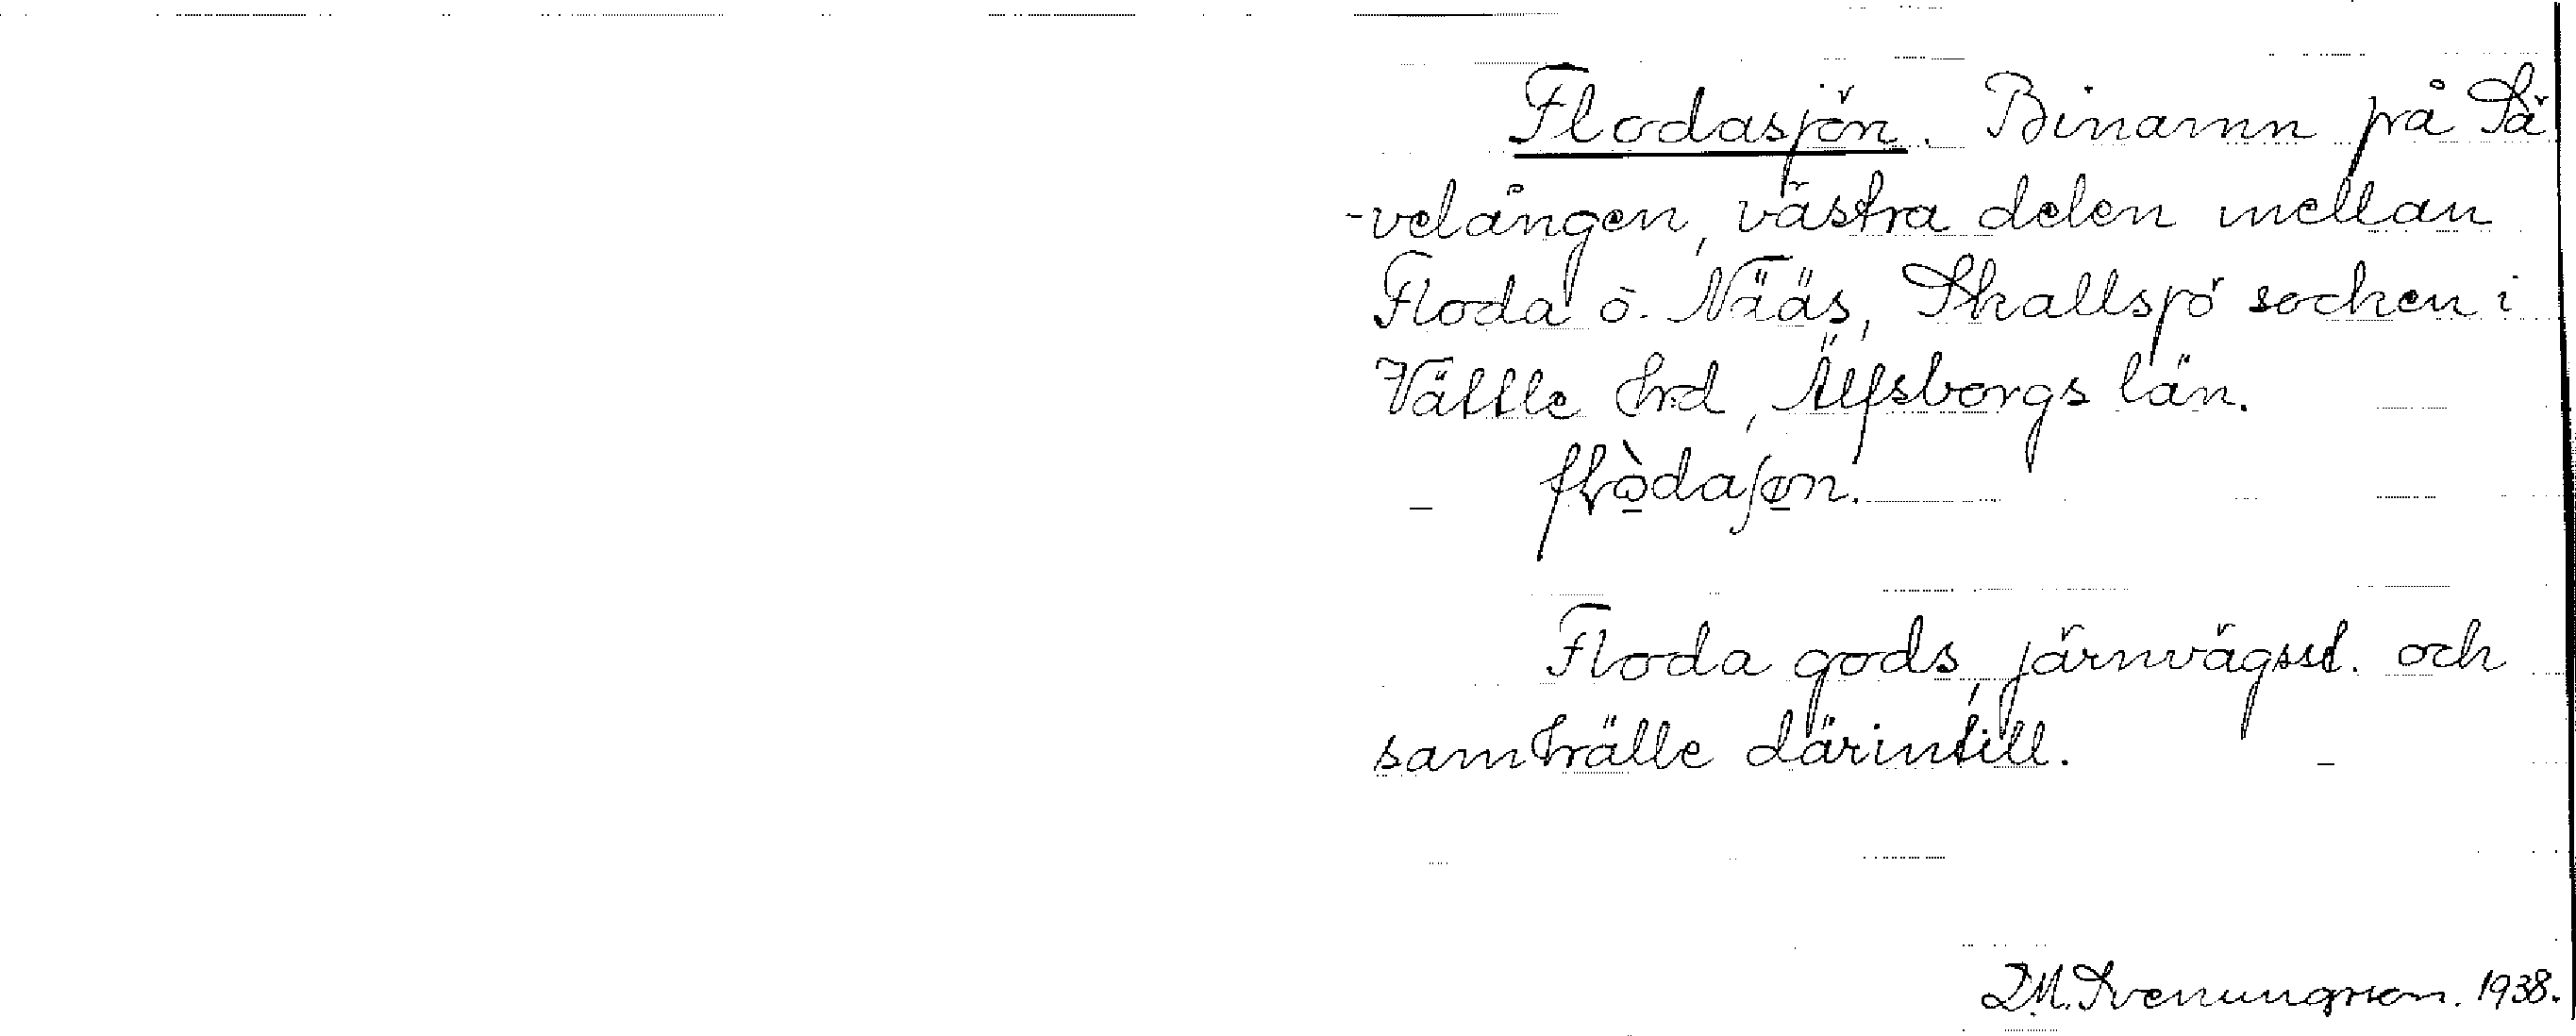 Flodasjön. Binamn på Sä
-velången, västra delen mellan
Floda o. Nääs, Skallsjö socken i
Vättle hrd, Älfsborgs län.
Floda gods, järnvägsst. och
samhälle därintill.
Svenungsson. 1938.